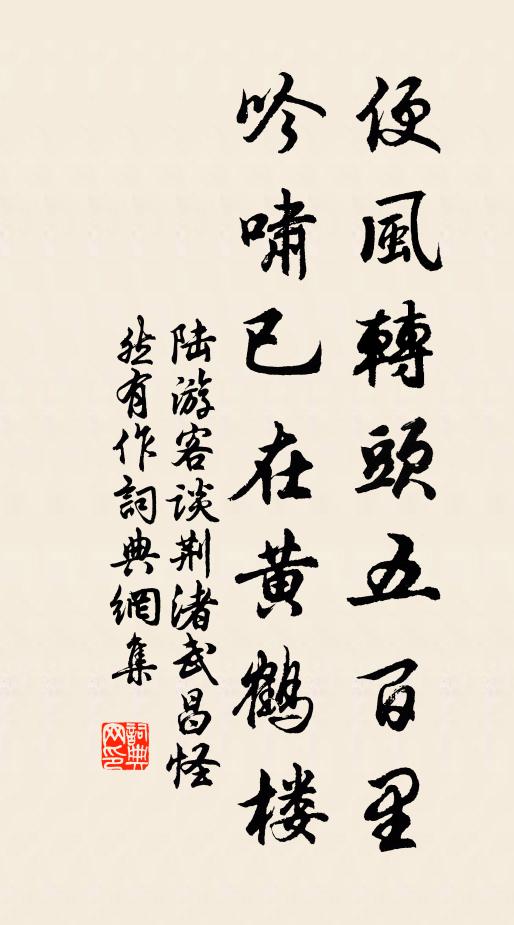 便風轉頭五百里
吟嘯已在黃鶴楼
陆游客谈荆渚武昌怪
然有作詞典網集
詞典网印